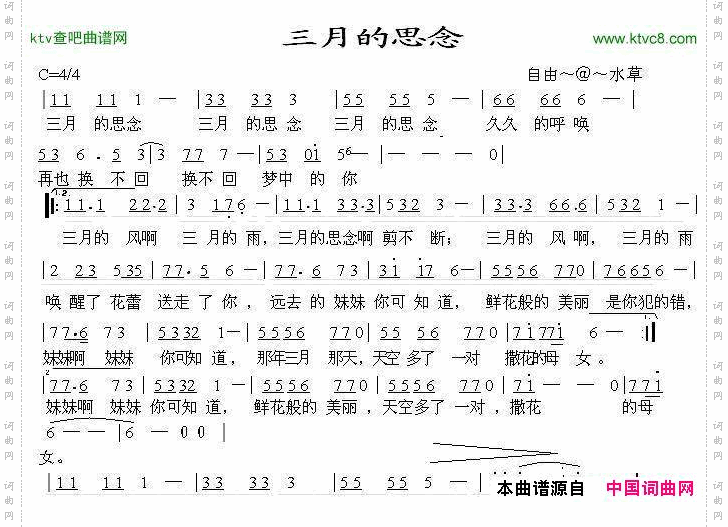 ktv查吧曲谱网 三月的思念 www.ktvc8.com
C=4/4 自由～@～水草
|11 11 1 — |33 33 3 |55 55 5 — |66 66 6 — |
三月 的思念 三月 的思念 三月 的思念 久久 的呼唤
53 6 . 5 3|3 77 7 —|53 01 5 6 — — — 0|
再也 换 不 回 换不 回 梦中 的 你
1.2.
|:11.1 22.2|3 176 — |11.1 33.3|532 3 — |33.3 66.6|532 1 —|
三月的 风啊 三 月的 雨,三月的思念啊 剪不 断； 三月的 风 啊， 三月的 雨
|2 23 535|77.5 6 —|77.6 73|31 17 6—|5556 770|76656 —|
唤 醒了 花蕾 送走 了 你 ，远去 的 妹妹 你可 知道， 鲜花般的 美丽 是你犯的错，
|77.6 73 |5332 1—|5556 770|55 56 770|71771 6 — :||
妹妹啊 妹妹 你可知 道， 那年三月 那天,天空 多了 一对 撒花的母 女。
2
|77.6 73|5332 1 —|5556 770|5556 770|71 — — 0|771
妹妹啊 妹妹 你可知 道， 鲜花般的 美丽 ，天空多了 一对 ，撒花 的母
6 — —|6 — 0 0 |
女。
|11 11 1 — |33 33 3 |55 55 5 —
本曲谱源自 中国词曲网
词曲网
词曲网